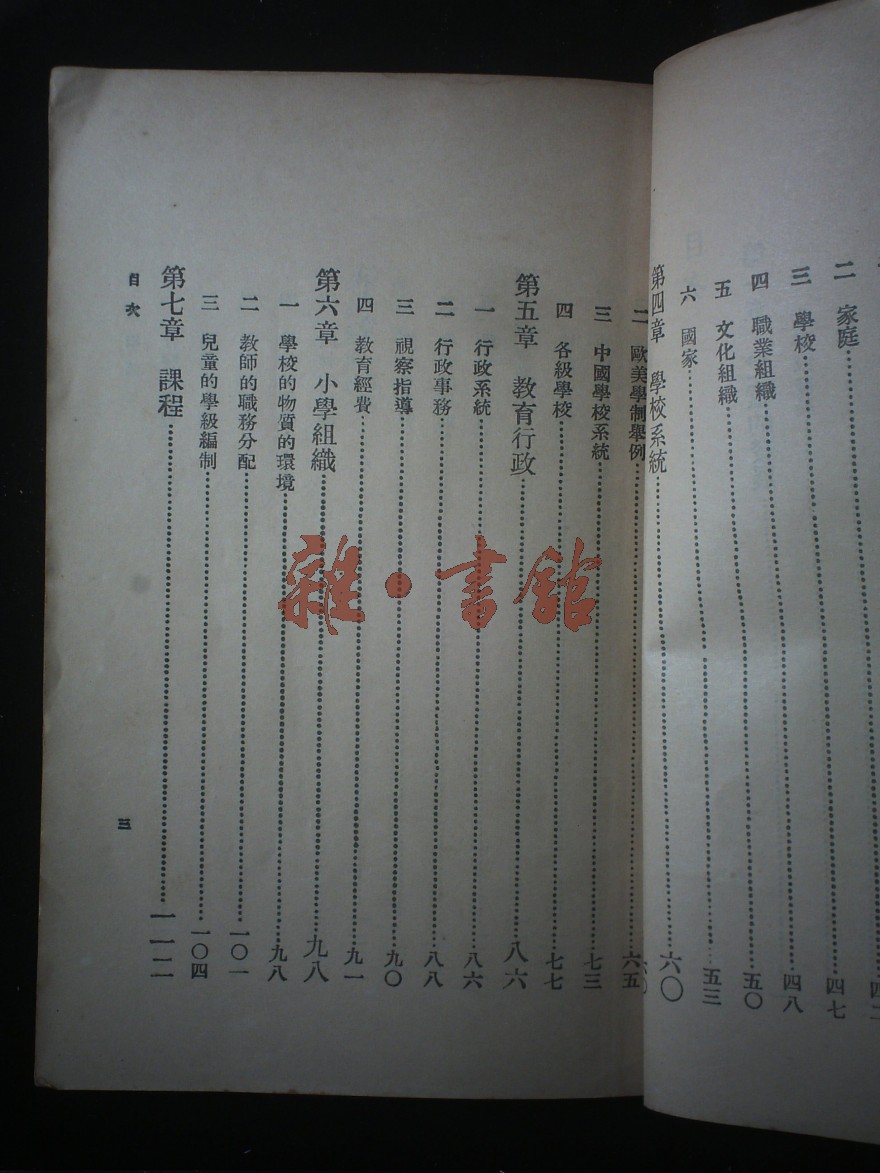 二 家庭
三 學校 四七
四 職業組織 四八
五 文化組織 五〇
六 國家 五三
第四章 學校系統 六〇
二 歐美學制舉例 六五
三 中國學校系統 七三
四 各級學校 七七
第五章 教育行政 八六
一 行政系統 八六
二 行政事務 八八
三 視察指導 九〇
四 教育經費 九一
第六章 小學組織 九八
一 學校的物質的環境 九八
二 教師的職務分配 一〇一
三 兒童的學級編制 一〇四
第七章 課程 一一二
目次
三
雜·書館